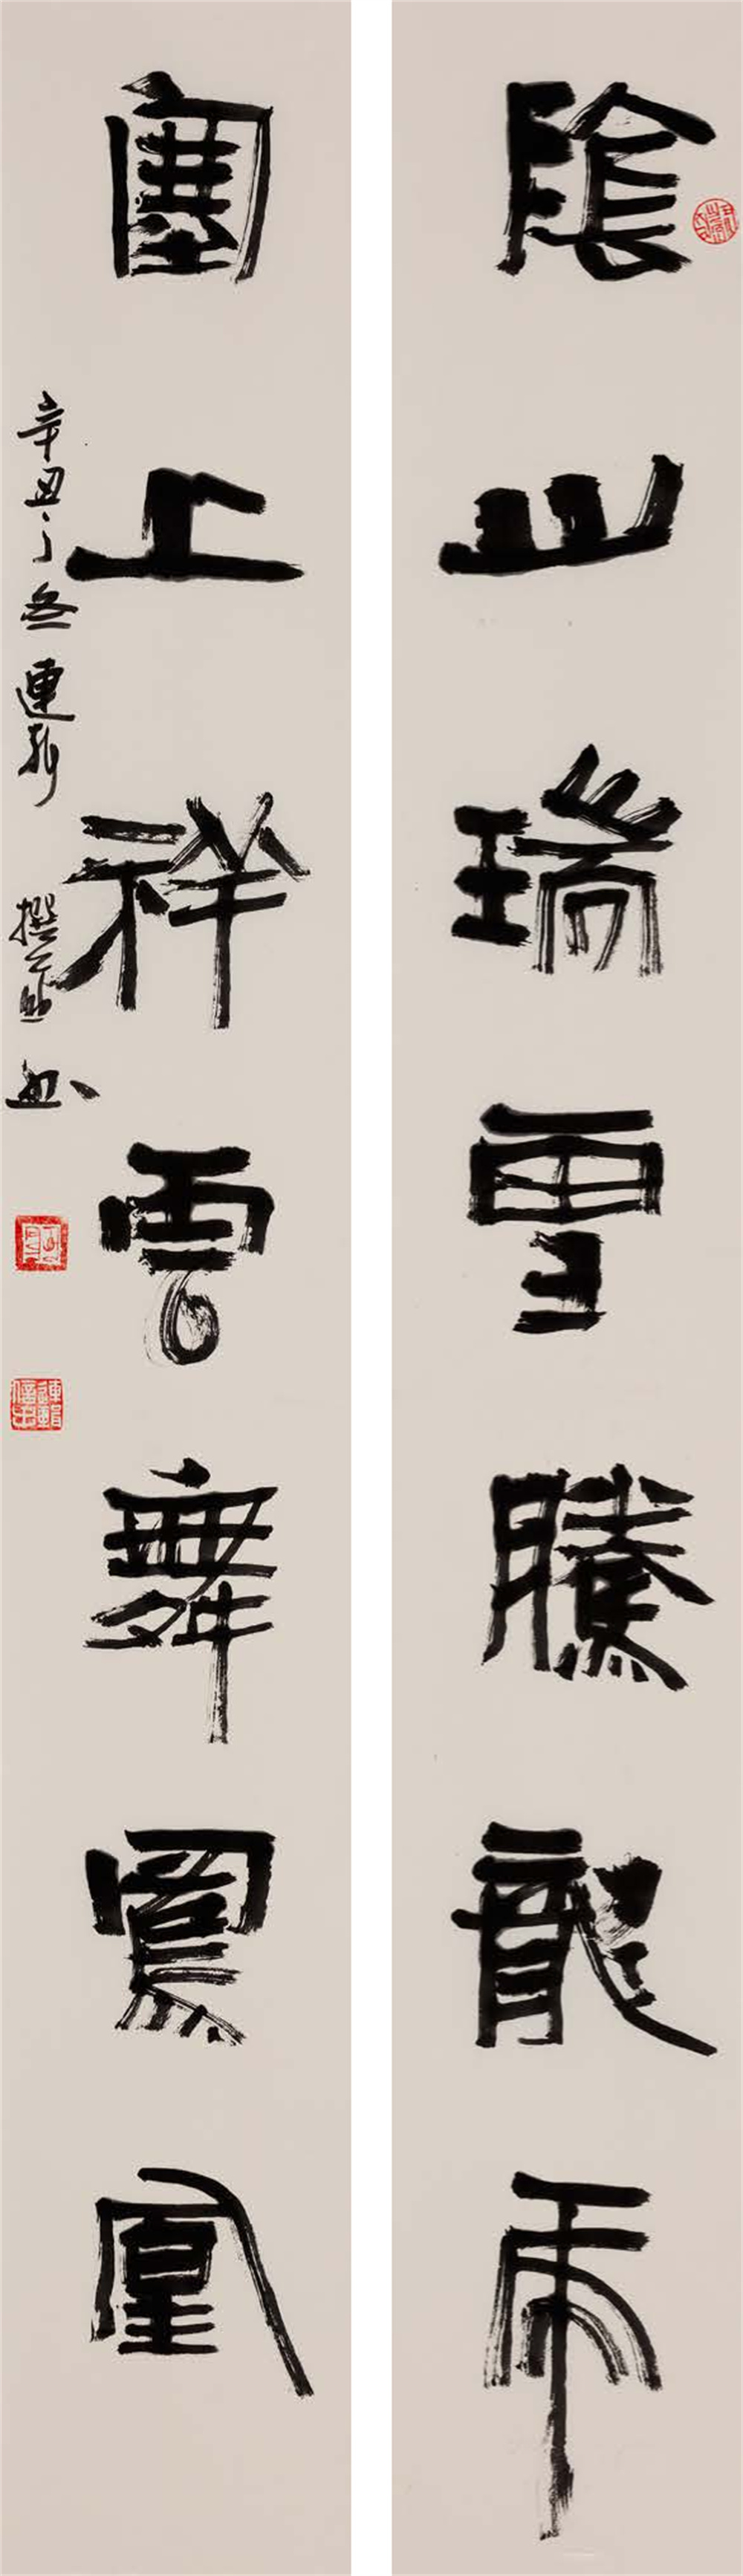 陰山瑞雪騰龍虎
塞上祥雲舞鳳凰
辛丑之冬連輯撰並書